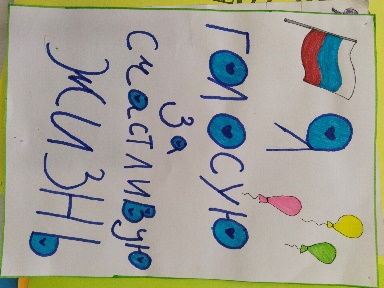 Я
ГОЛОСУЮ
За
СчастливУЮ
ЖИЗНЬ